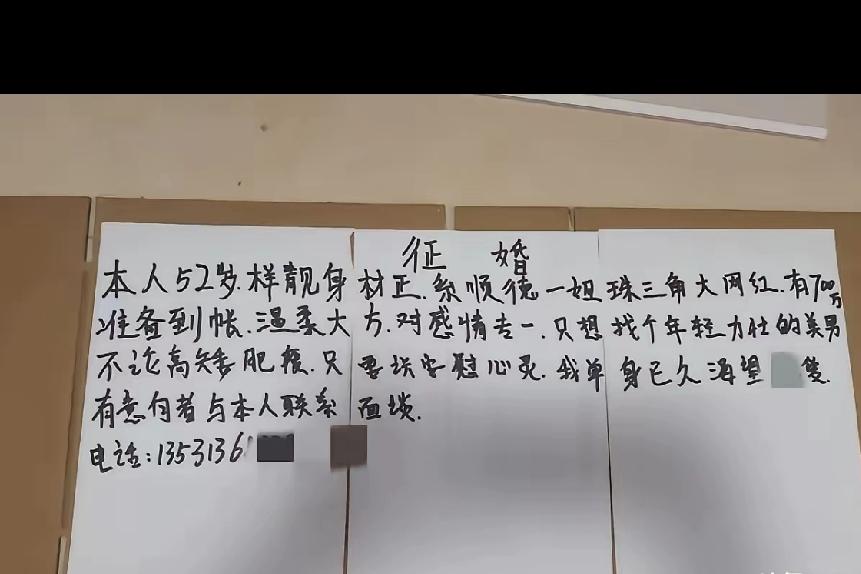 征 婚
本人52岁.样靓身材正.系顺德一姐珠三角大网红.有700万
准备到帐.温柔大方.对感情专一.只想找个年轻力壮的美男
不论高矮肥瘦.只要埃安慰心灵.我单身已久渴望 隻.
有意向者与本人联系面埮.
电话:1353136